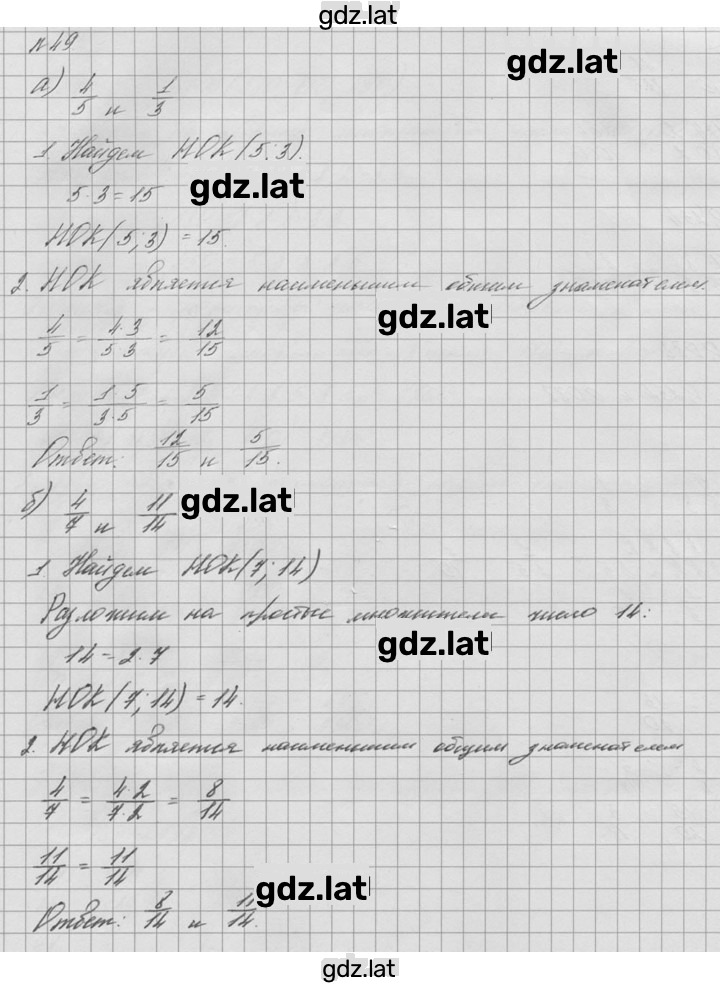 gdz.lat
№49
gdz.lat
а) 4/5 и 1/3
1. Найдем НОК(5;3).
gdz.lat
5·3=15
НОК(5;3)=15.
2. НОК является наименьшим общим знаменателем.
gdz.lat
4/5 = 4·3/5·3 = 12/15
1/3 = 1·5/3·5 = 5/15
Ответ: 12/15 и 5/15.
б) 4/7 и 11/14
gdz.lat
1. Найдем НОК(7;14)
Разложим на простые множители число 14:
gdz.lat
14=2·7
НОК(7;14)=14.
2. НОК является наименьшим общим знаменателем
4/7 = 4·2/7·2 = 8/14
11/14 = 11/14
gdz.lat
Ответ: 8/14 и 11/14.
gdz.lat